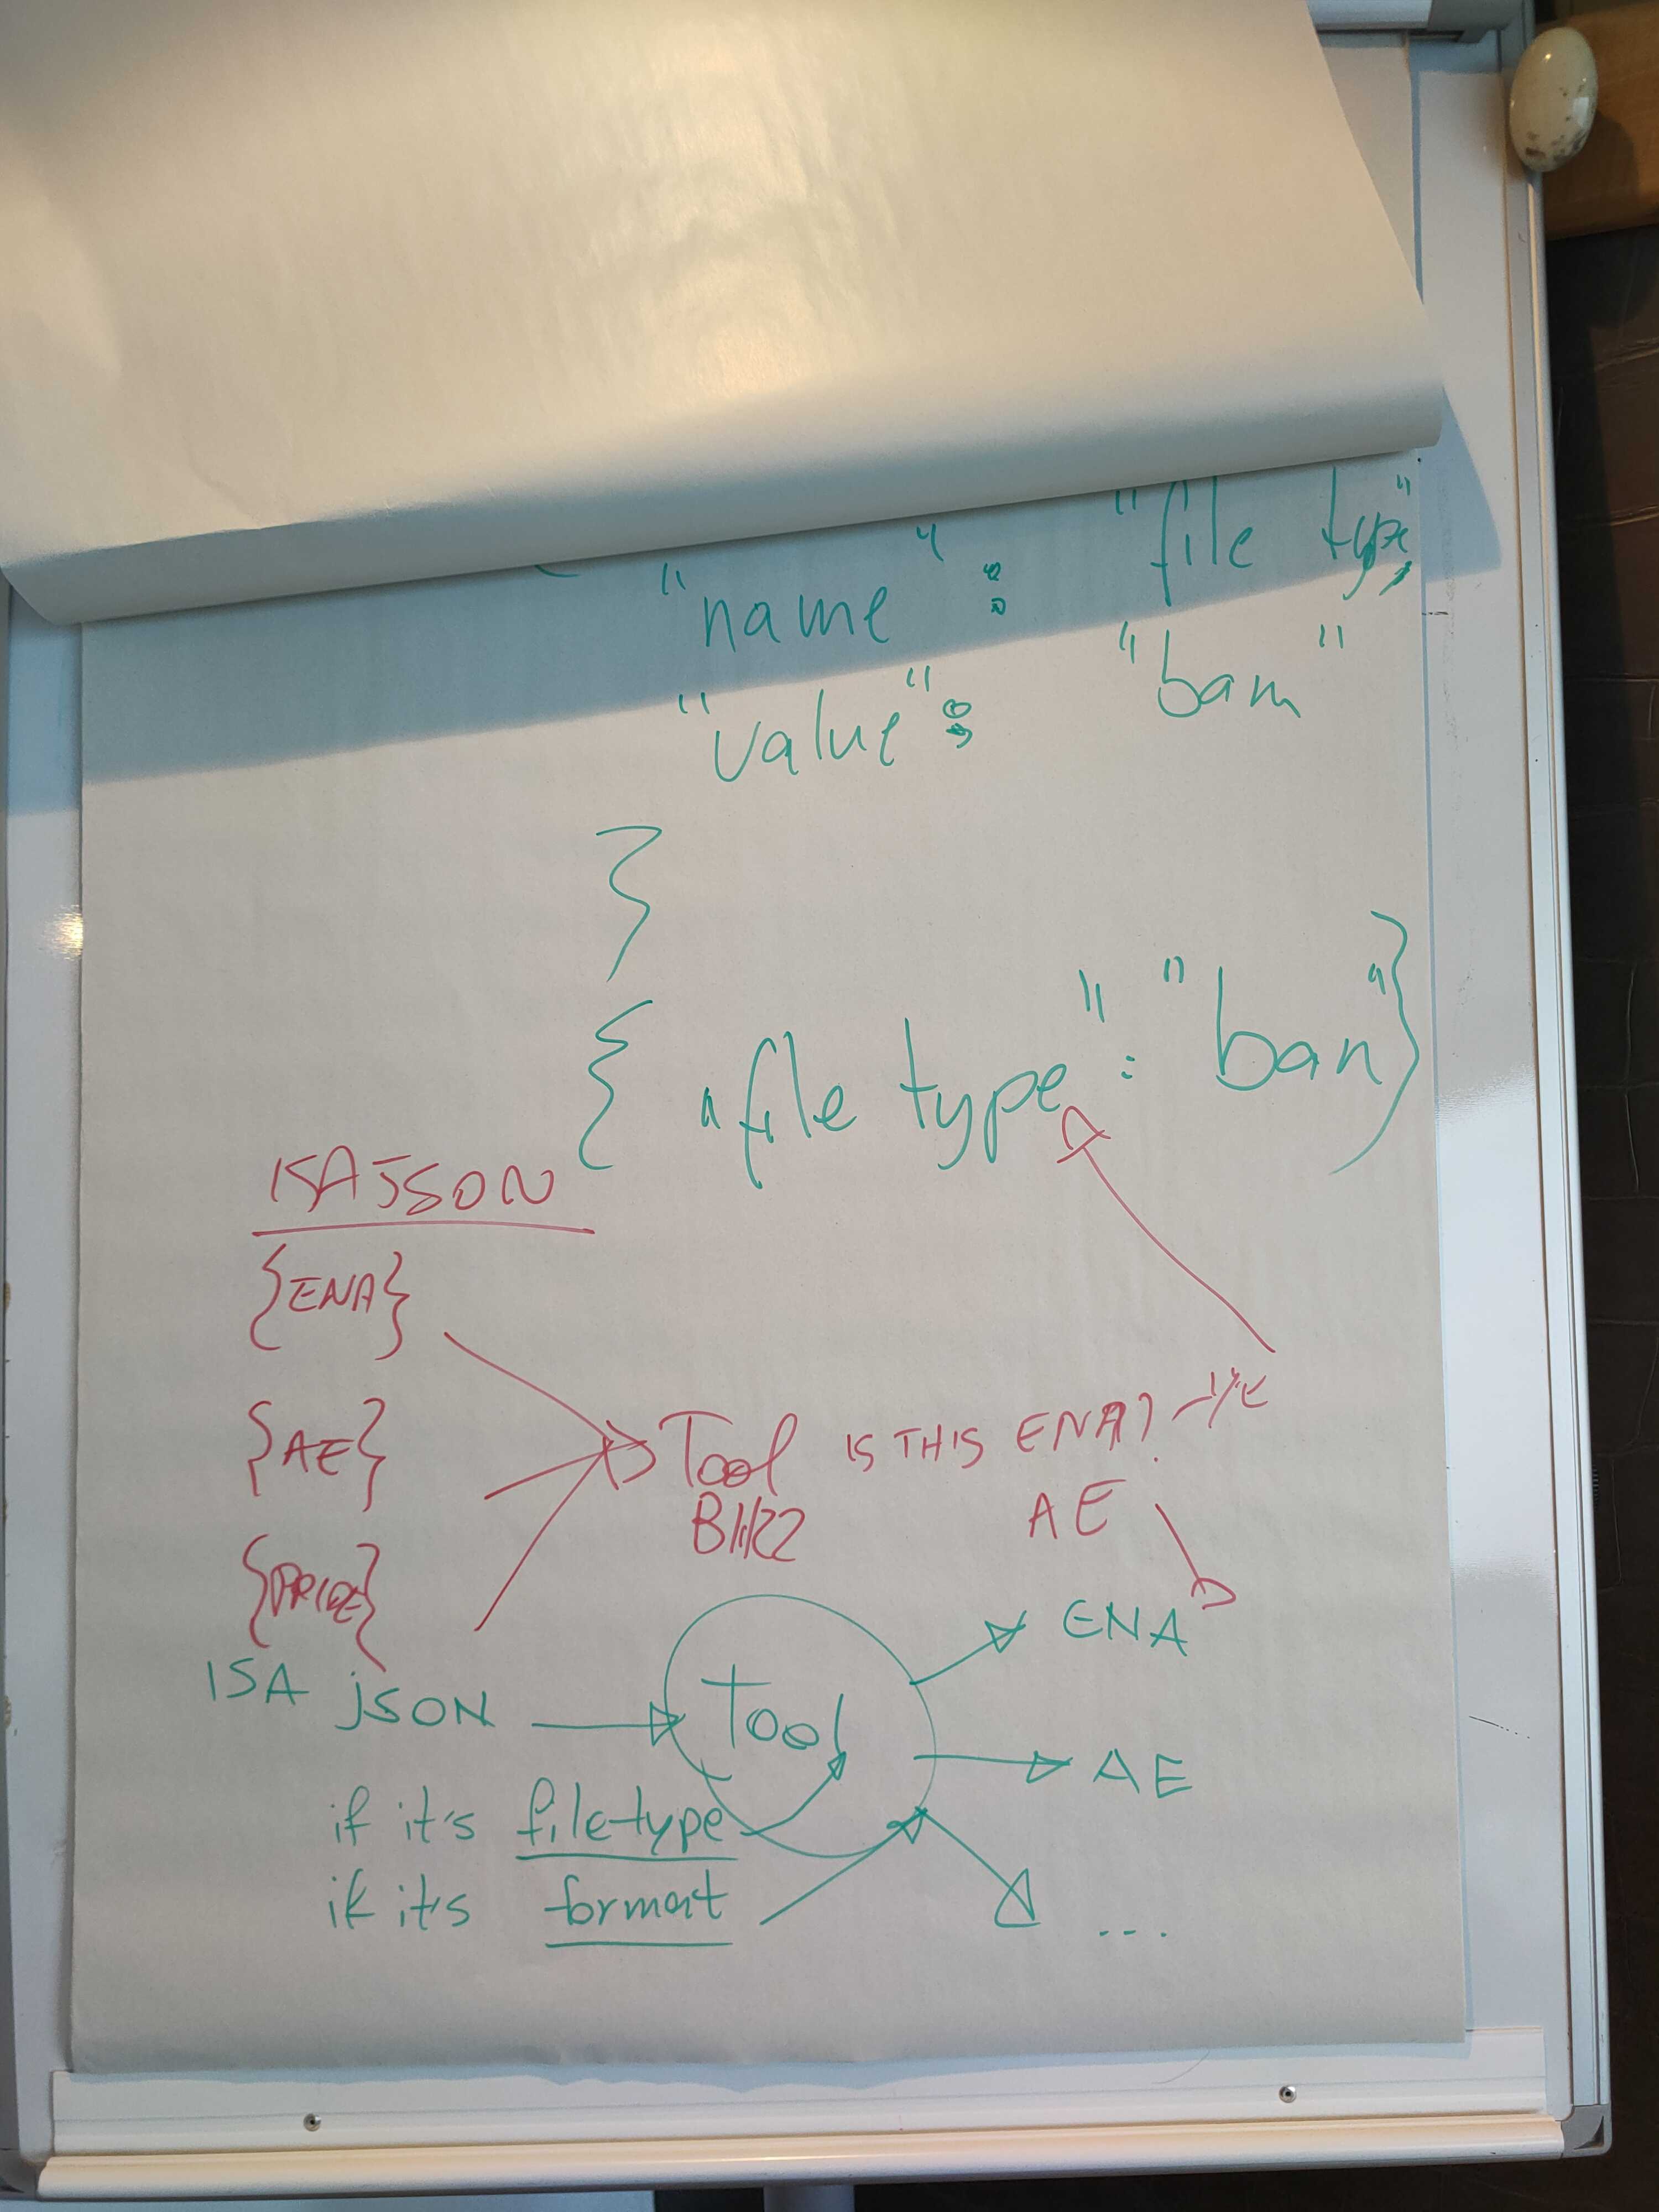 "name": "file type",
"value": "bam"
}
{ "file type": "ban" }
ISA JSON
{ENA}
{AE}
{PRIDE}
Tool IS THIS ENA?
AE
ISA json
Tool
ENA
AE
...
if it's filetype
if it's format